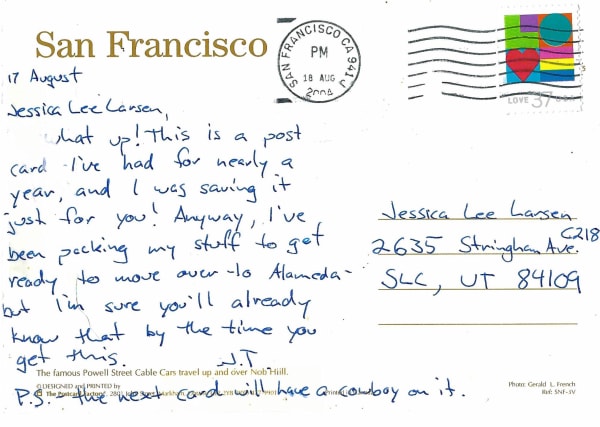 San Francisco
SAN FRANCISCO CA 941
PM
18 AUG
2004
LOVE 37 USA
17 August
Jessica Lee Larsen,
What up! This is a post
card I've had for nearly a
year, and I was saving it
just for you! Anyway, I've
been packing my stuff to get
ready to move over to Alameda -
but I'm sure you'll already
know that by the time you
get this. J.T
P.S. - the next card will have a cowboy on it.
Jessica Lee Larsen
2635 Stringham Ave. C218
SLC, UT 84109
The famous Powell Street Cable Cars travel up and over Nob Hiill.
© DESIGNED and PRINTED by
The Postcard Factory
Photo: Gerald L. French
Ref: SNF-3V